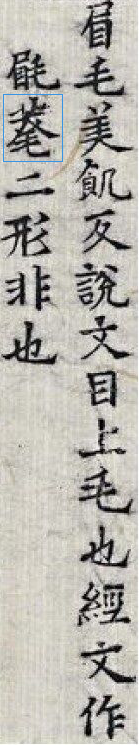 眉毛美飢反說文目上毛也經文作
二形非也